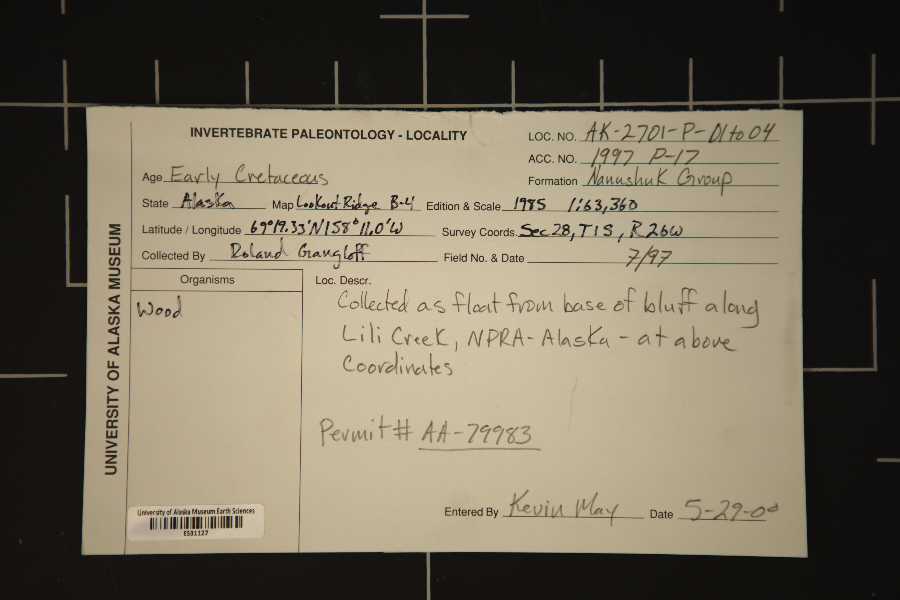 INVERTEBRATE PALEONTOLOGY - LOCALITY
LOC. NO. AK-2701-P-01 to 04
ACC. NO. 1997 P-17
Age Early Cretaceous
Formation Nanushuk Group
State Alaska Map Lookout Ridge B-4 Edition & Scale 1985 1:63,360
Latitude / Longitude 69°19.33'N 158°11.0'W Survey Coords. Sec 28, T1S, R26W
Collected By Roland Gangloff Field No. & Date 7/97
Organisms
Wood
Loc. Descr.
Collected as float from base of bluff along
Lili Creek, NPRA - Alaska - at above
Coordinates
Permit # AA-79983
Entered By Kevin May Date 5-29-00
UNIVERSITY OF ALASKA MUSEUM
University of Alaska Museum Earth Sciences
ES01127